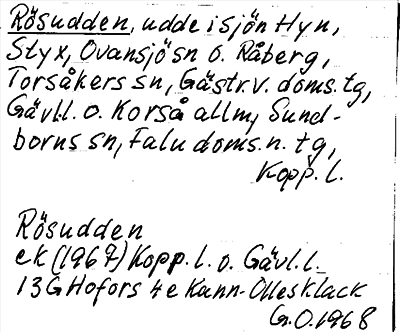 Rösudden, udde i sjön Hyn,
Styx, Ovansjö sn o. Råberg,
Torsåkers sn, Gästr.v. doms. tg,
Gävl.l. o. Korså allm, Sund-
borns sn, Falu doms. n. tg,
Kopp. l.
Rösudden
ek (1967) Kopp. l. o. Gävl.l.
13G Hofors 4e Kann-Ollesklack
G.O. 1968